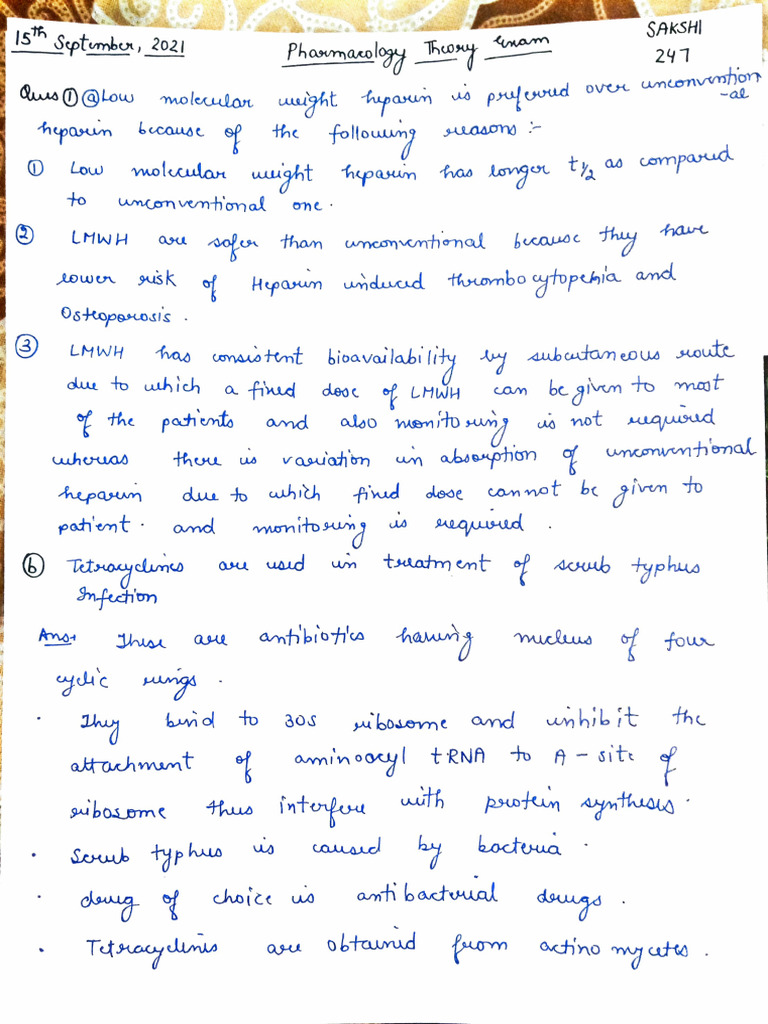 15th September, 2021 Pharmacology Theory Exam SAKSHI
247
Ques ① ⓐ Low molecular weight heparin is preferred over unconvention
-al
heparin because of the following reasons :-
① Low molecular weight heparin has longer t1/2 as compared
to unconventional one.
② LMWH are safer than unconventional because they have
lower risk of Heparin induced thrombocytopenia and
Osteoporosis.
③ LMWH has consistent bioavailability by subcutaneous route
due to which a fixed dose of LMWH can be given to most
of the patients and also monitoring is not required
whereas there is variation in absorption of unconventional
heparin due to which fixed dose cannot be given to
patient. and monitoring is required.
ⓑ Tetracyclines are used in treatment of scrub typhus
Infection
Ans→ These are antibiotics having nucleus of four
cyclic rings.
· They bind to 30S ribosome and inhibit the
attachment of aminoacyl tRNA to A-site of
ribosome thus interfere with protein synthesis.
· Scrub typhus is caused by bacteria.
· drug of choice is antibacterial drugs.
· Tetracyclines are obtained from actinomycetes.